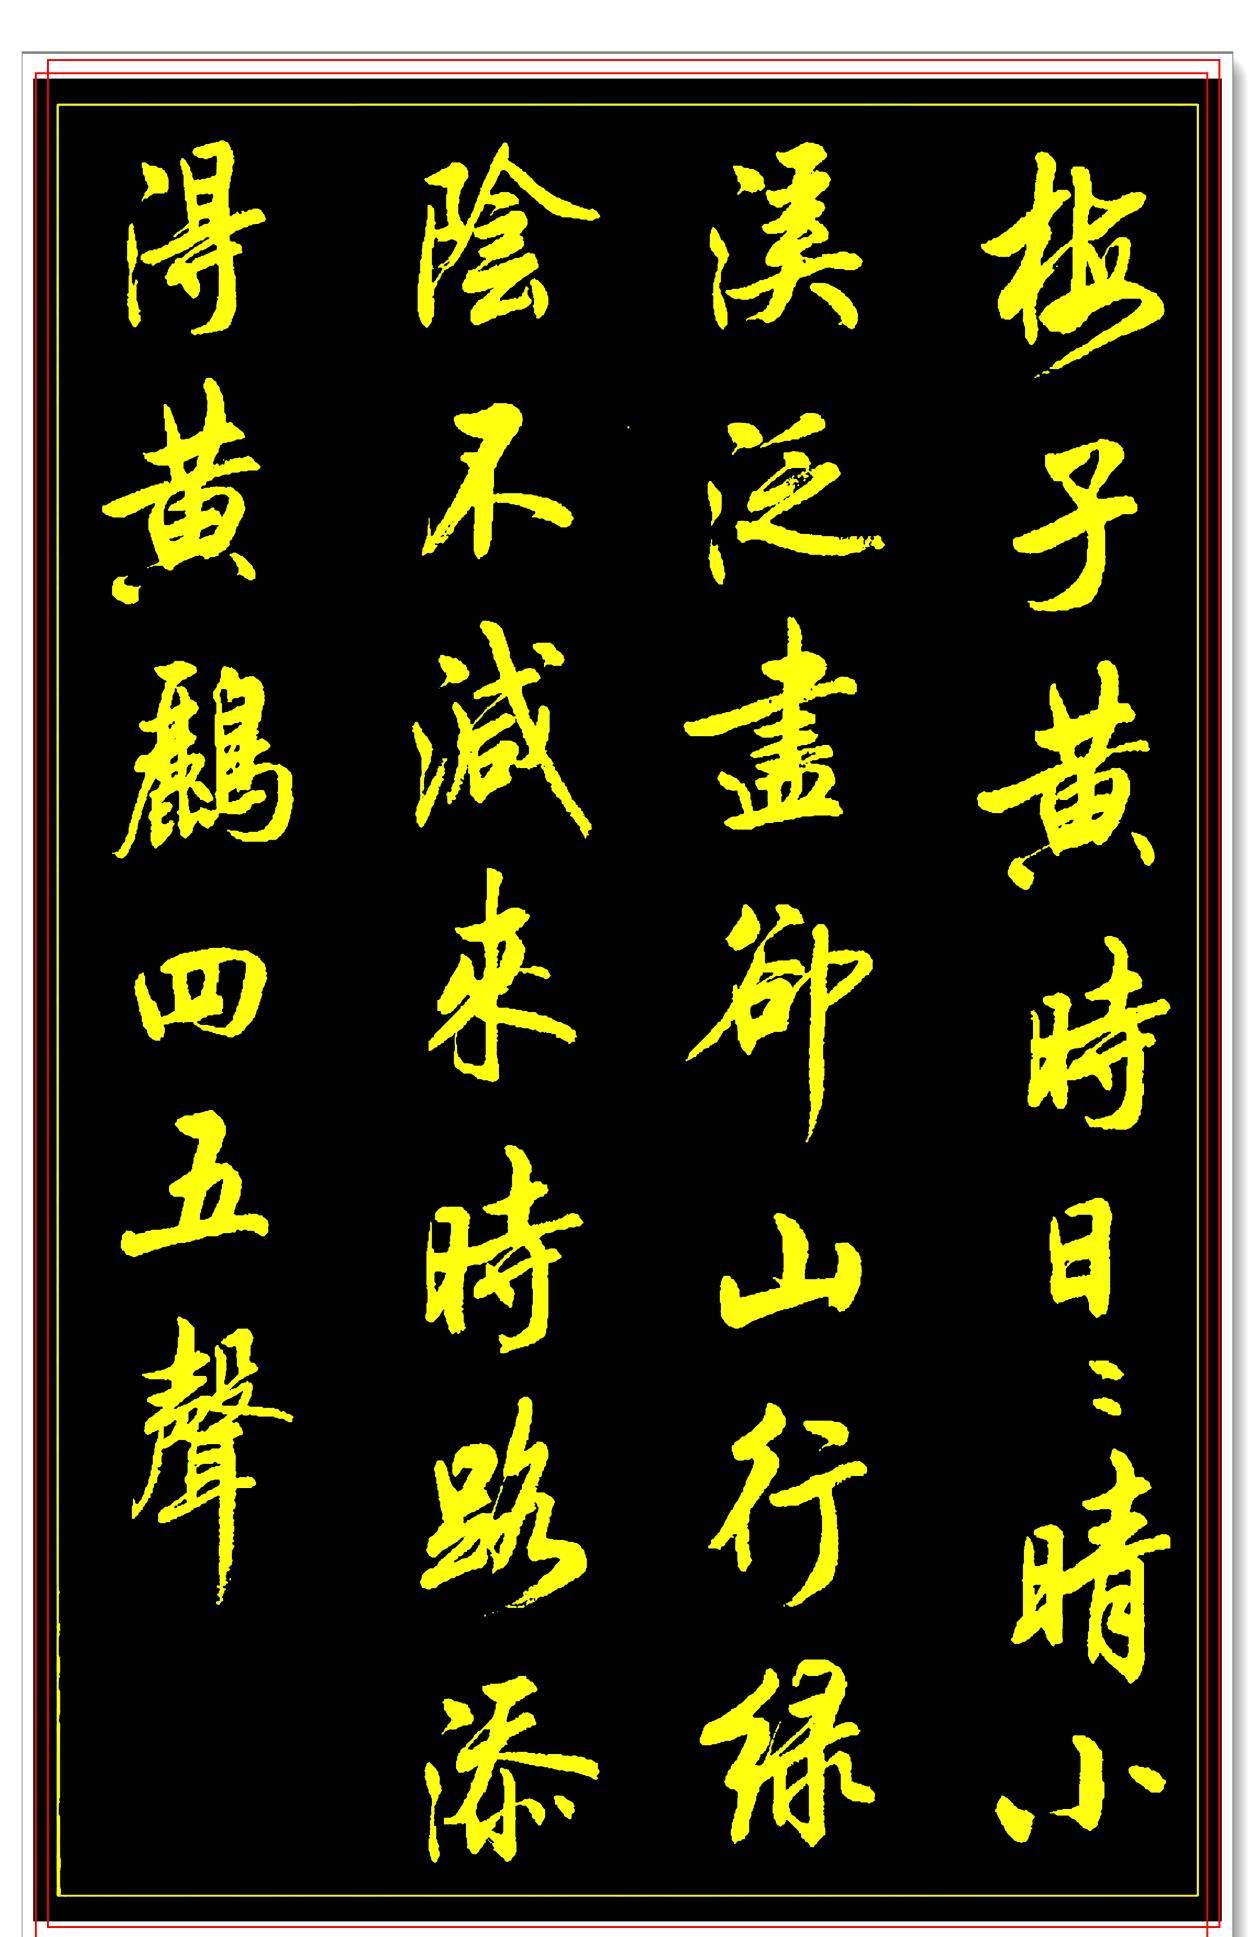 梅子黄時日〻晴小
溪泛盡卻山行緑
陰不減來時路添
得黄鸝四五聲